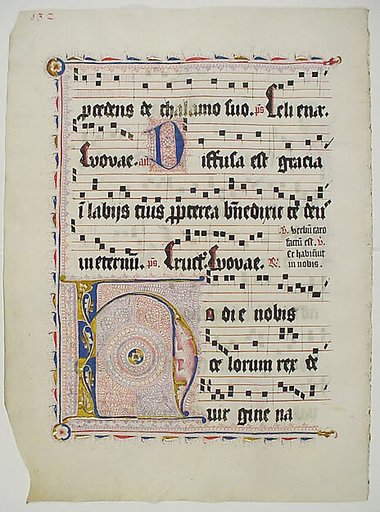 132
pcedens de thalamo suo. ps Celi enar.
Evovae. añ Diffusa est gracia
i labijs tuis ppterea bñedixit te deu
in eternũ. ps. Eruct. Evovae. R.
V. Verbũ caro
factũ est. V.
Et habitavit
in nobis.
Hodie nobis
ce lorum rex de
vir gine na